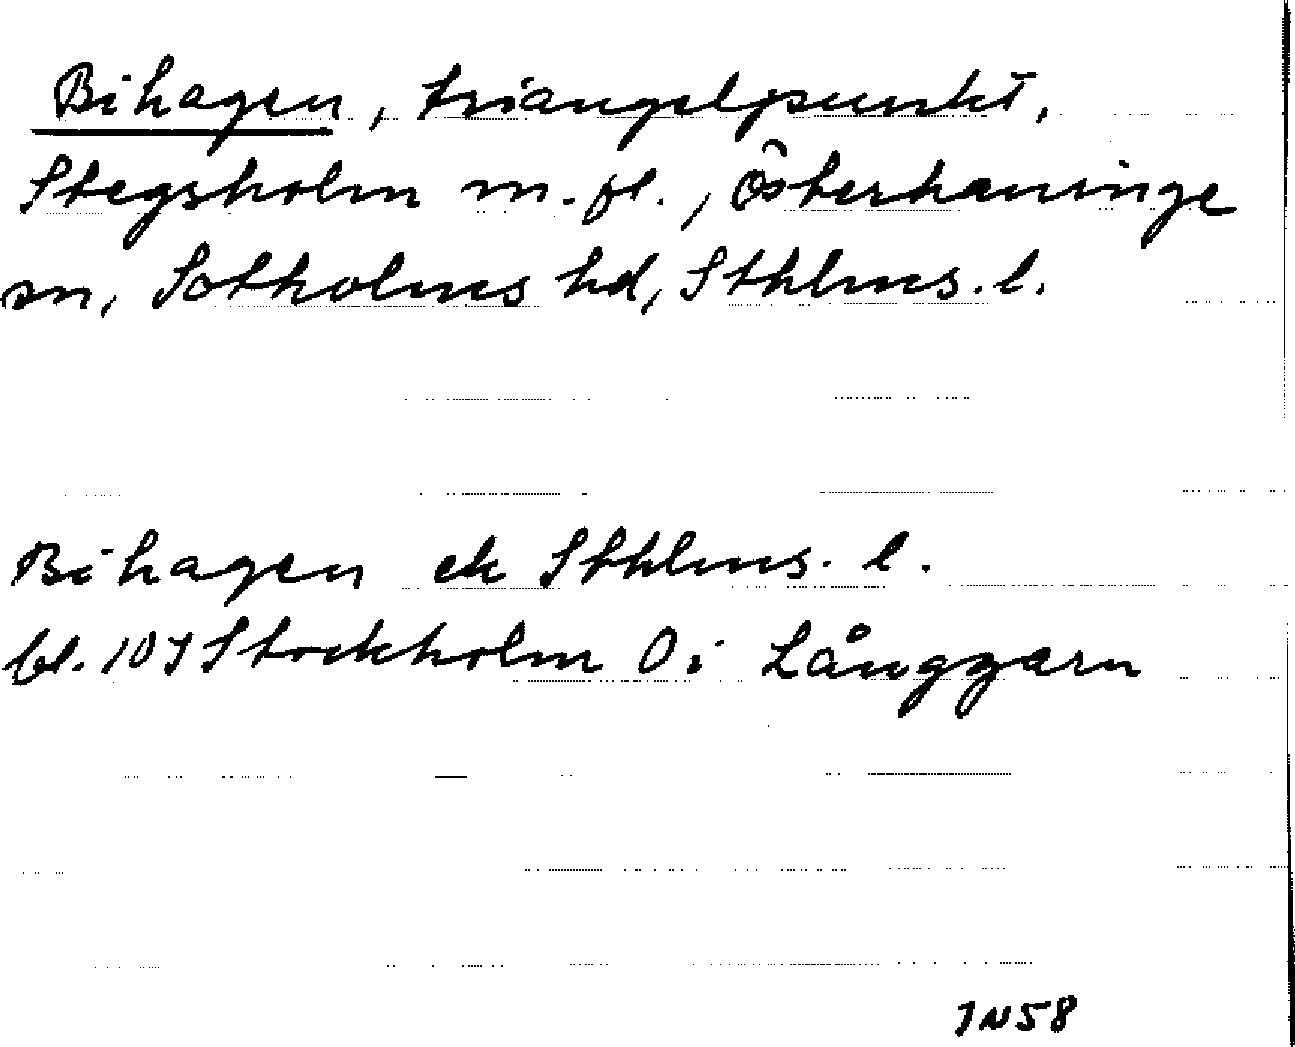 Bihagen, triangelpunkt,
Stegsholm m. fl., Österhaninge
sn, Sotholms hd, Sthlms. l.
Bihagen ek Sthlms. l.
bl. 10J Stockholm Oi Långgarn
JN58